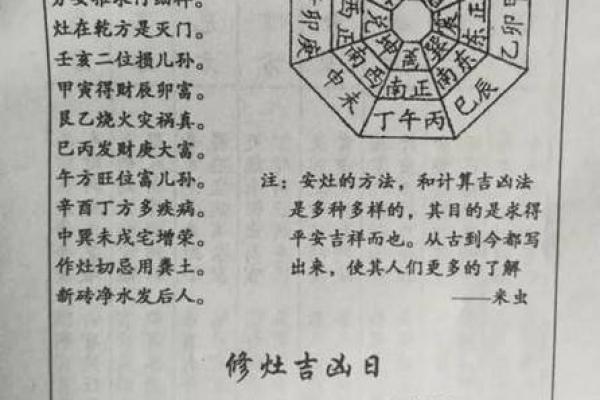 灶在乾方是灭门。
壬亥二位损儿孙。
甲寅得财辰卯富。
艮乙烧火灾祸真。
巳丙发财庚大富。
午方旺位富儿孙。
辛酉丁方多疾病。
中巽未戌宅增荣。
作灶切忌用粪土。
新砖净水发后人。
卯庚
正东
震
乙卯
坤
巽
西南
东南
申未
正南
巳辰
丁午丙
注：安灶的方法，和计算吉凶法
是多种多样的，其目的是求得
平安吉祥而也。从古到今都写
出来，使其人们更多的了解
——米虫
修灶吉凶日